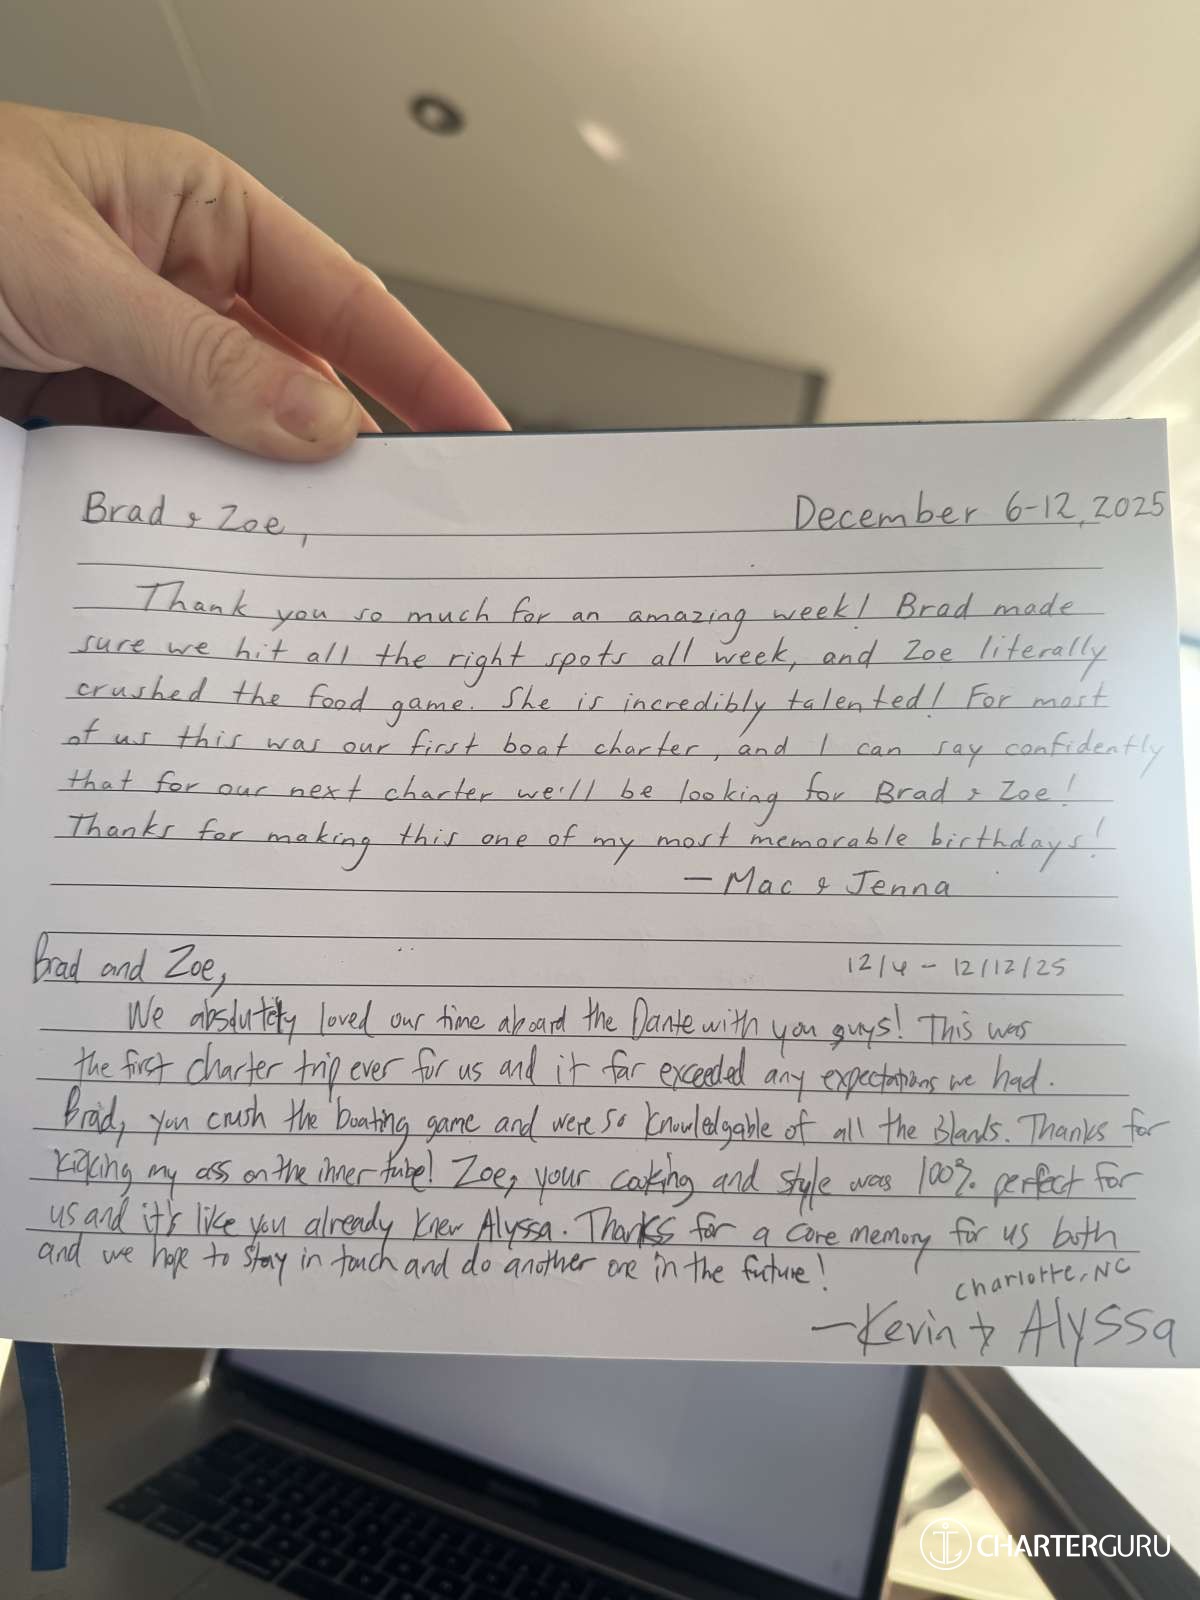 Brad & Zoe,
December 6-12, 2025
Thank you so much for an amazing week! Brad made
sure we hit all the right spots all week, and Zoe literally
crushed the food game. She is incredibly talented! For most
of us this was our first boat charter, and I can say confidently
that for our next charter we'll be looking for Brad & Zoe!
Thanks for making this one of my most memorable birthdays!
- Mac & Jenna
Brad and Zoe,
12/6 - 12/12/25
We absolutely loved our time aboard the Dante with you guys! This was
the first charter trip ever for us and it far exceeded any expectations we had.
Brad, you crush the boating game and were so knowledgable of all the islands. Thanks for
kicking my ass on the inner tube! Zoe, your cooking and style was 100% perfect for
us and it's like you already knew Alyssa. Thanks for a core memory for us both
and we hope to stay in touch and do another one in the future!
Charlotte, NC
- Kevin + Alyssa
CHARTERGURU